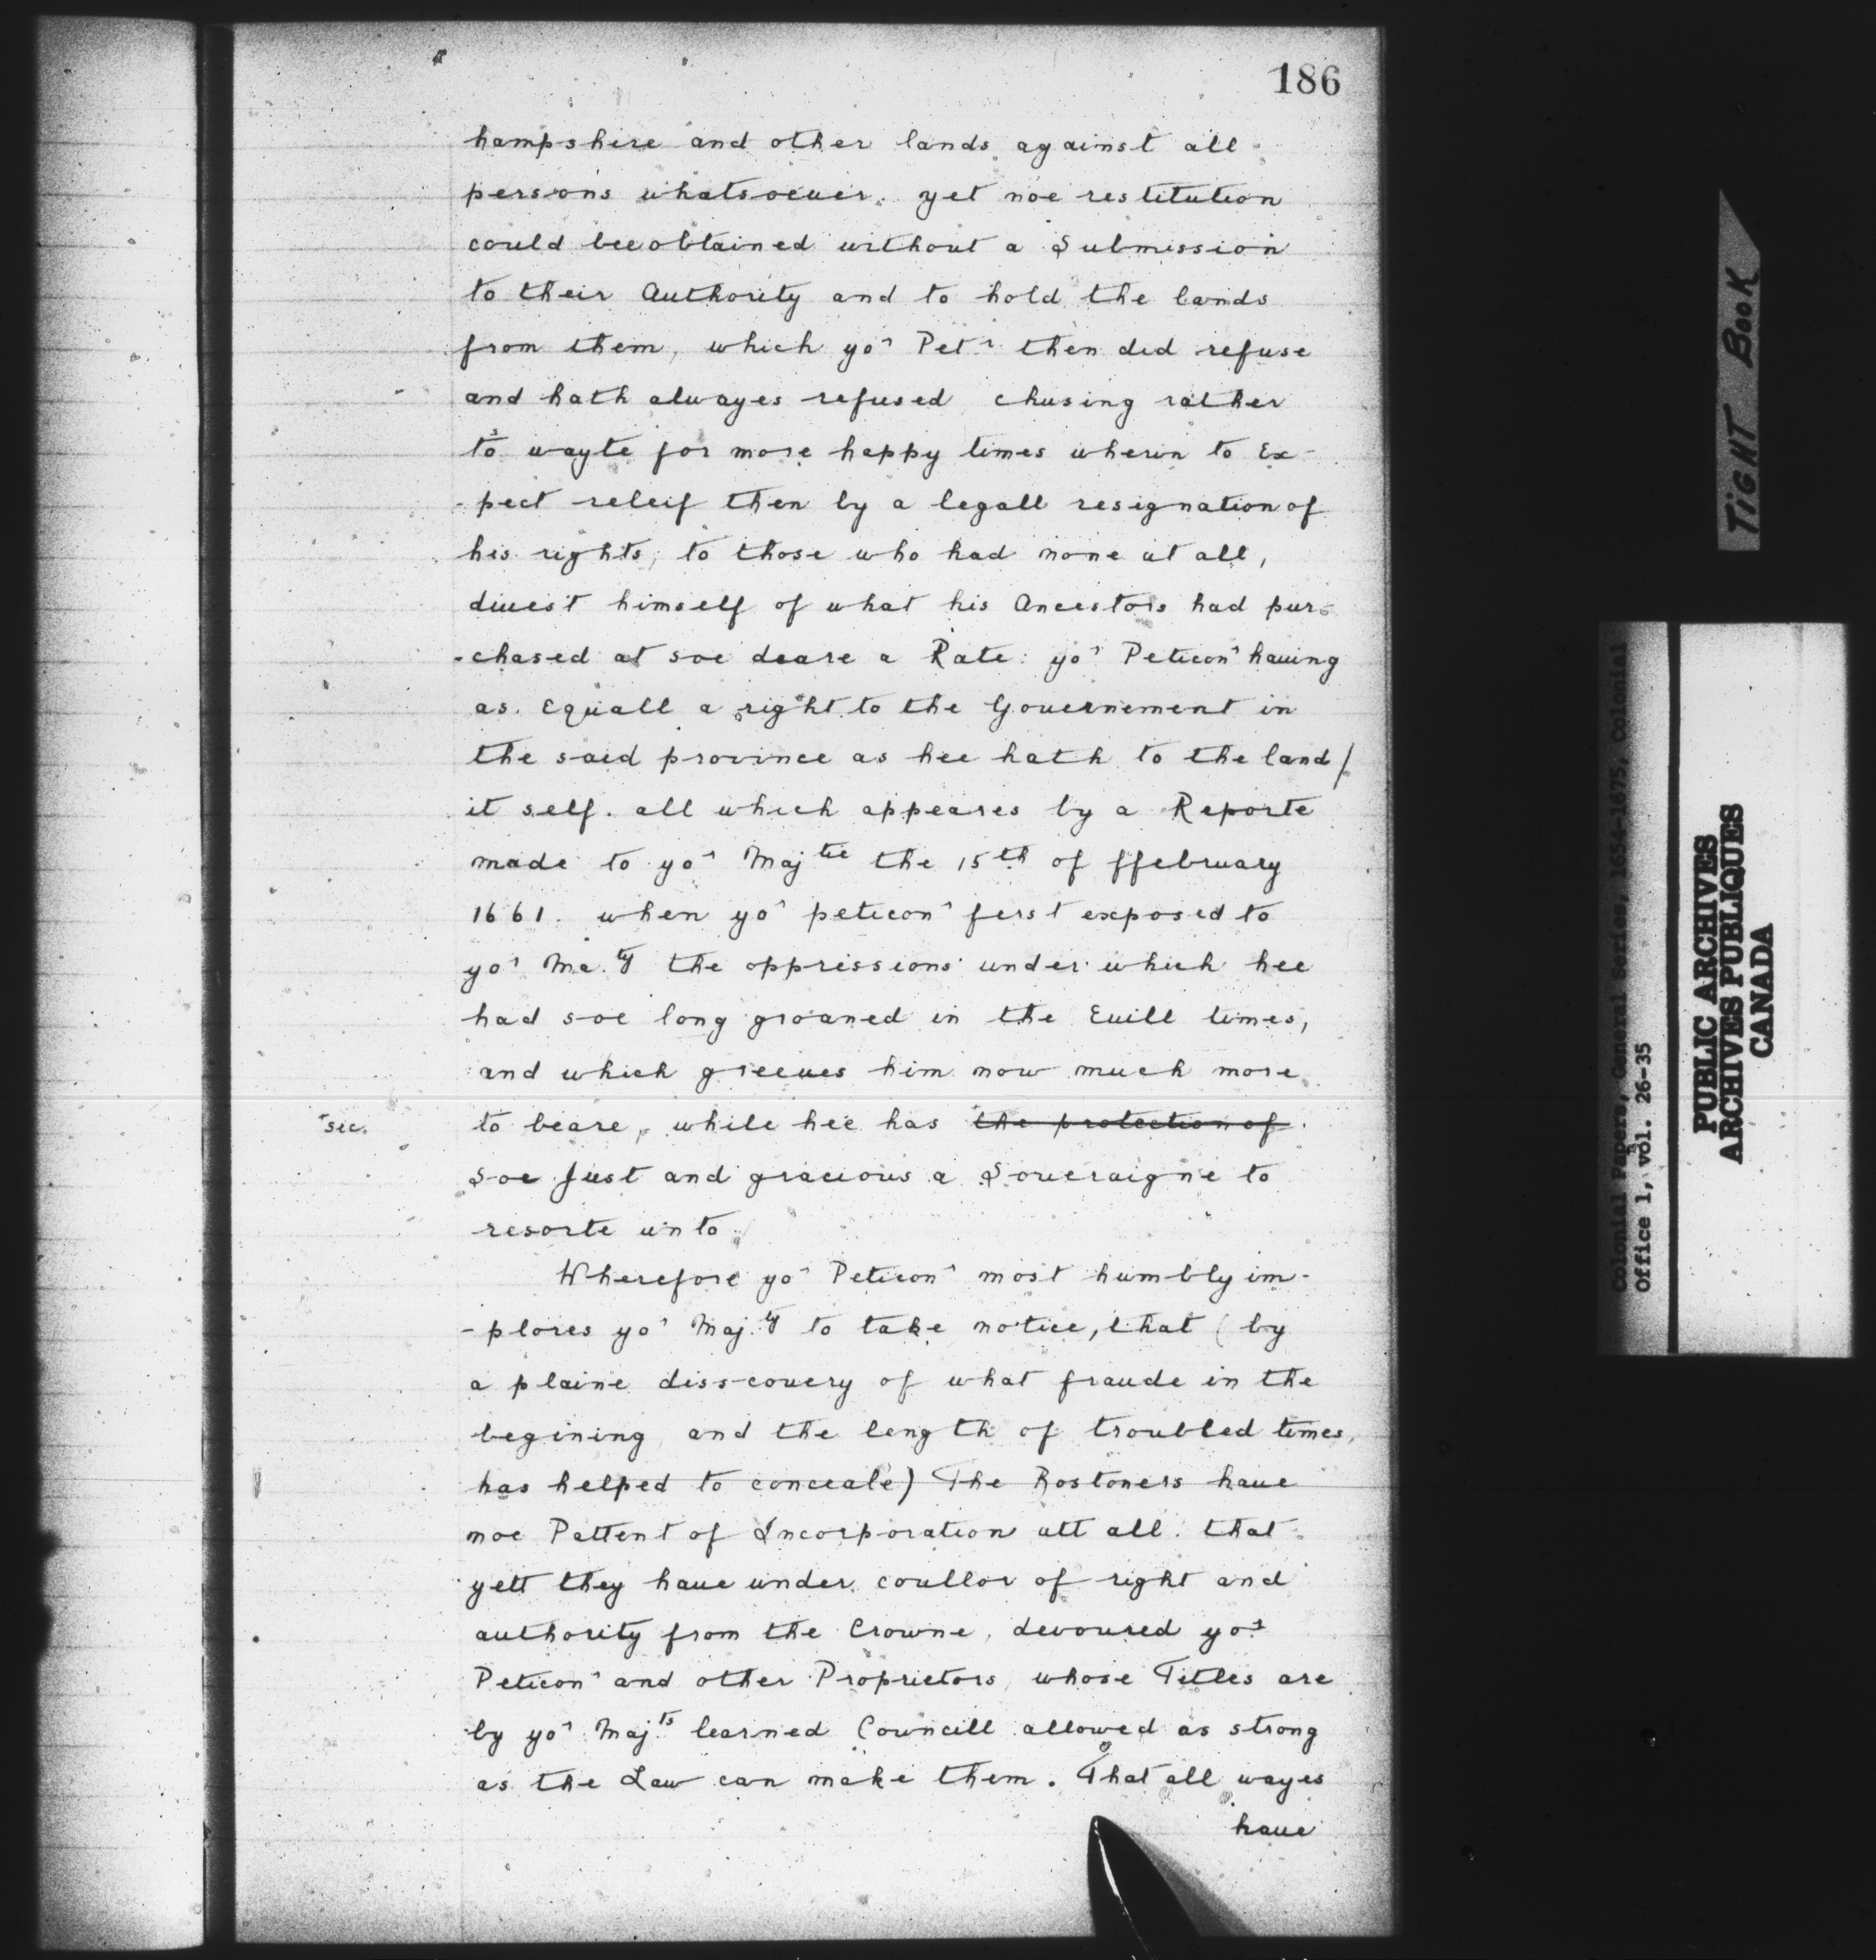 186
hampshire and other lands against all
persons whatsoeuer, yet noe restitution
could bee obtained without a Submission
to their Authority and to hold the lands
from them, which yoʳ Petʳ then did refuse
and hath alwayes refused, chusing rather
to wayte for more happy times wherin to Ex-
-pect releif then by a legall resignation of
his rights, to those who had none at all,
diuest himself of what his Ancestors had pur-
-chased at soe deare a Rate: yoʳ Peticonʳ hauing
as Equall a right to the Gouernement in
the said province as hee hath to the land/
it self. all which appeares by a Reporte
made to yoʳ Majᵗⁱᵉ the 15ᵗʰ of ffebruary
1661. when yoʳ peticonʳ first exposed to
yoʳ Ma.ᵗʸ the oppressions under which hee
had soe long groaned in the Euill times,
and which greeues him now much more
sic. to beare, while hee has the protection of
Soe Just and gracious a Soueraigne to
resorte unto.
Wherefore yoʳ Peticonʳ most humbly im-
-plores yoʳ Maj.ᵗʸ to take notice, that (by
a plaine disscouery of what fraude in the
begining, and the length of troubled times,
has helped to conceale) The Bostoners haue
noe Pattent of Incorporation att all: that
yett they haue under coullor of right and
authority from the Crowne, devoured yoʳ
Peticonʳ and other Proprietors, whose Titles are
by yoʳ Majᵗˢ learned Councill allowed as strong
as the Law can make them. That all wayes
haue
TIGHT BOOK
Colonial Papers, General Series, 1654-1675, Colonial
Office 1, vol. 26-35
PUBLIC ARCHIVES
ARCHIVES PUBLIQUES
CANADA